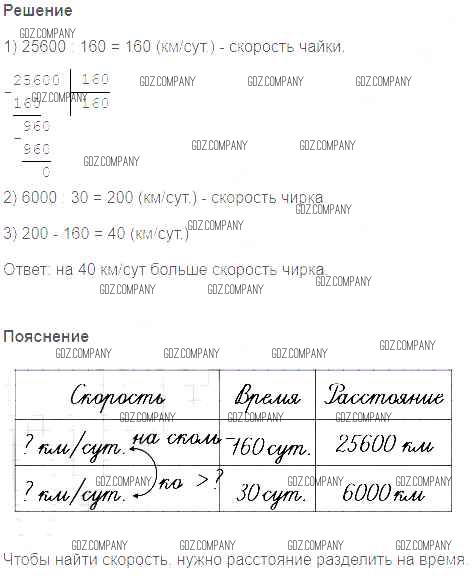 Решение
GDZ.COMPANY
1) 25600 : 160 = 160 (км/сут.) - скорость чайки.
25600 160
GDZ.COMPANY GDZ.COMPANY GDZ.COMPANY
160 GDZ.COMPANY 160
960
- GDZ.COMPANY GDZ.COMPANY
960
GDZ.COMPANY
0
2) 6000 : 30 = 200 (км/сут.) - скорость чирка
GDZ.COMPANY
3) 200 - 160 = 40 (км/сут.)
GDZ.COMPANY
Ответ: на 40 км/сут больше скорость чирка.
GDZ.COMPANY GDZ.COMPANY GDZ.COMPANY
Пояснение
GDZ.COMPANY GDZ.COMPANY GDZ.COMPANY GDZ.COMPANY
Скорость Время Расстояние
GDZ.COMPANY GDZ.COMPANY GDZ.COMPANY
? км/сут. на сколь- 160 сут. 25600 км
? км/сут. ко > ? 30 сут. 6000 км
GDZ.COMPANY GDZ.COMPANY GDZ.COMPANY
GDZ.COMPANY GDZ.COMPANY GDZ.COMPANY GDZ.COMPANY
Чтобы найти скорость, нужно расстояние разделить на время.